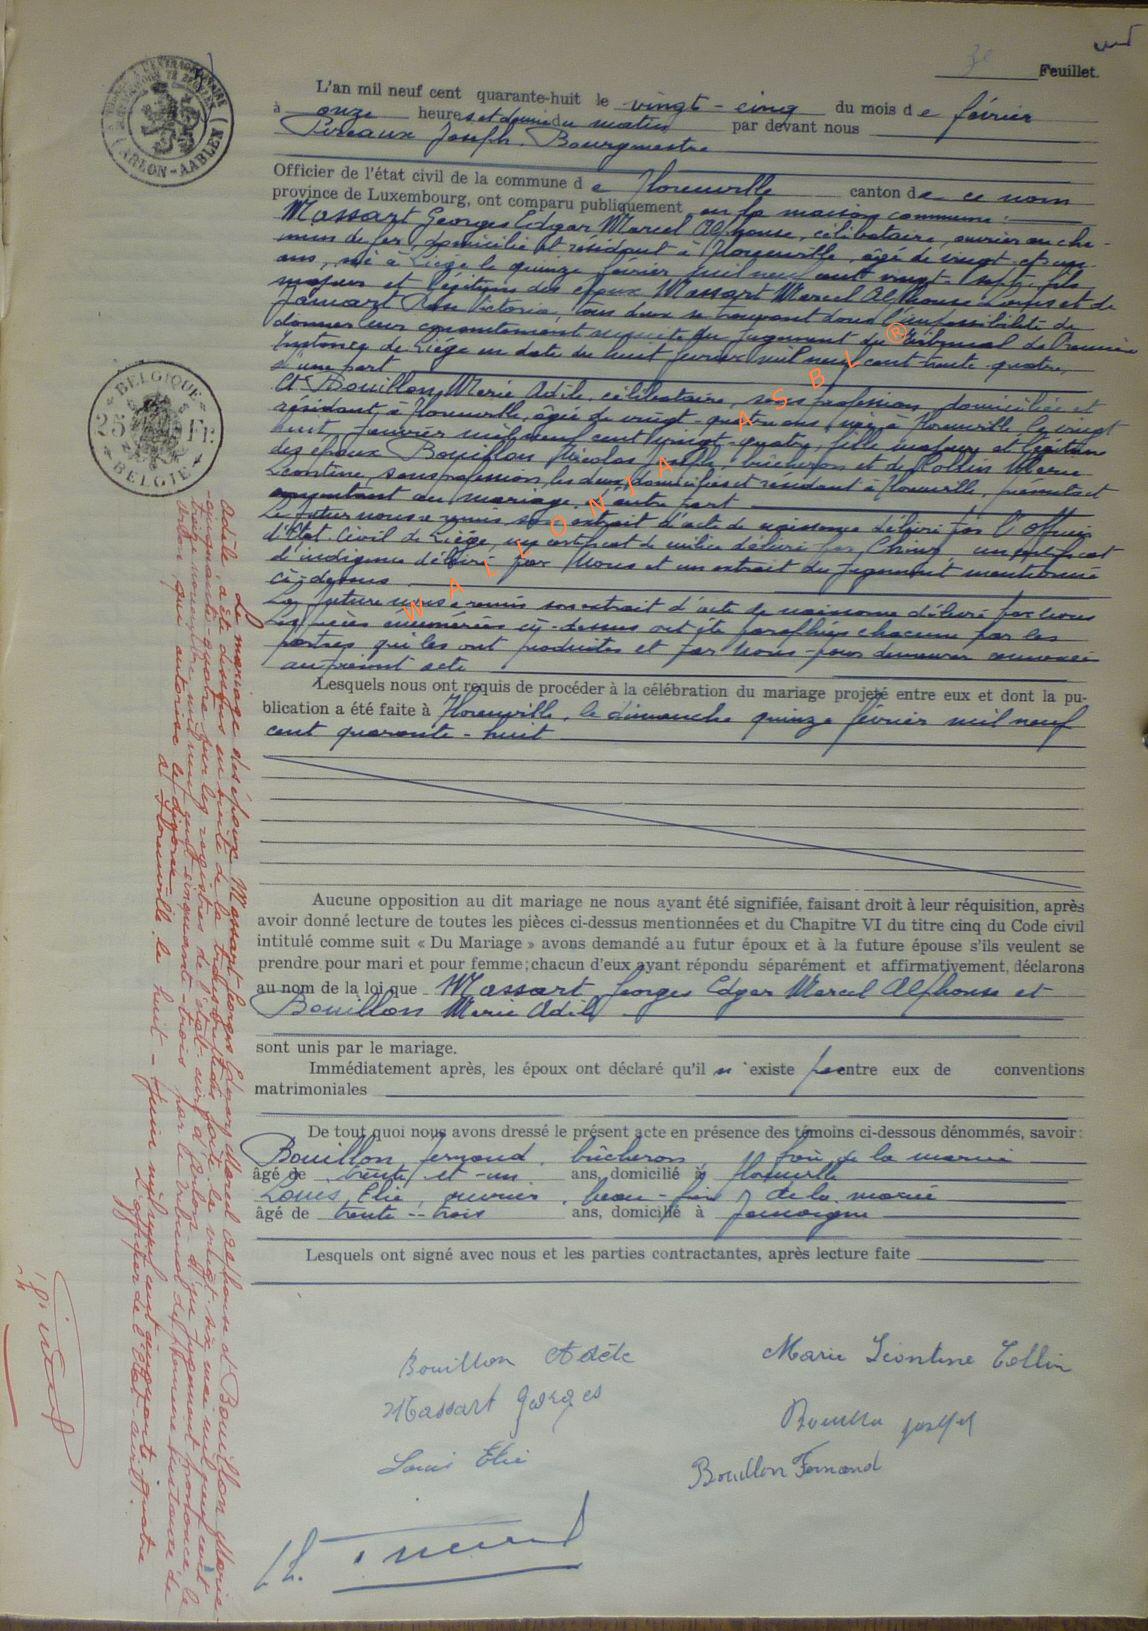 3e Feuillet.
L'an mil neuf cent quarante-huit le vingt-cinq du mois de février
à onze heures et demie du matin par devant nous
Joseph, Bourgmestre
Officier de l'état civil de la commune de Florenville canton de ce nom
province de Luxembourg, ont comparu publiquement en la maison commune:
Massart Georges Edgar Marcel Alphonse, célibataire, ouvrier au che-
min de fer, domicilié et résidant à Florenville, âgé de vingt et un
ans, né à Liège le quinze février mil neuf cent vingt-sept, fils
majeur et légitime des époux Massart Marcel Alphonse Louis et de
Jamart Rose Victoria, tous deux se trouvant dans l'impossibilité de
donner leur consentement suivant jugement du Tribunal de Première
Instance de Liège en date du huit mil neuf cent trente quatre,
d'une part
Et Bouillon Marie Adèle, célibataire, sans profession, domiciliée et
résidant à Florenville, âgée de vingt-quatre ans, née à Florenville le vingt
huit janvier mil neuf cent vingt-quatre, fille majeure et légitime
des époux Bouillon Nicolas Joseph, bûcheron et de Collin Marie
Léontine, sans profession, les deux domiciliés et résidant à Florenville, présents et
consentant au mariage, d'autre part
Le futur nous a remis son extrait d'acte de naissance délivré par l'officier
d'Etat-Civil de Liège, un certificat de milice délivré par un certificat
d'indigence délivré par Nous et un extrait du jugement mentionné
ci-dessus
La future nous a remis son extrait d'acte de naissance délivré par nous
Les pièces énumérées ci-dessus ont été paraphées chacune par les
parties qui les ont produites et par Nous pour demeurer annexées
au présent acte
Lesquels nous ont requis de procéder à la célébration du mariage projeté entre eux et dont la pu-
blication a été faite à Florenville, le dimanche quinze février mil neuf
cent quarante-huit
Aucune opposition au dit mariage ne nous ayant été signifiée, faisant droit à leur réquisition, après
avoir donné lecture de toutes les pièces ci-dessus mentionnées et du Chapitre VI du titre cinq du Code civil
intitulé comme suit « Du Mariage » avons demandé au futur époux et à la future épouse s'ils veulent se
prendre pour mari et pour femme; chacun d'eux ayant répondu séparément et affirmativement, déclarons
au nom de la loi que Massart Georges Edgar Marcel Alphonse et
Bouillon Marie Adèle
sont unis par le mariage.
Immédiatement après, les époux ont déclaré qu'il n'existe pas entre eux de conventions
matrimoniales
De tout quoi nous avons dressé le présent acte en présence des témoins ci-dessous dénommés, savoir:
Bouillon Fernand, bûcheron, frère de la mariée
âgé de trente et un ans, domicilié à Florenville
Louis Elie, ouvrier, beau-frère de la mariée
âgé de trente-trois ans, domicilié à Jamoigne
Lesquels ont signé avec nous et les parties contractantes, après lecture faite
Bouillon Adèle
Marie Léontine Collin
Massart Georges
Bouillon Joseph
Louis Elie
Bouillon Fernand
Le mariage des époux Massart Georges Edgar Marcel Alphonse et Bouillon Marie-
Adèle, a été dissous en suite de la transcription faite le vingt six mai mil neuf cent
cinquante quatre sur les registres de l'état-civil d'Arlon d'un jugement prononcé le
treize novembre mil neuf cent cinquante-trois par le tribunal de Première instance de
Arlon qui autorise le divorce.
A Florenville le huit - juin mil neuf cent cinquante quatre
L'officier de l'Etat-civil
ARLON-AARLEN
BELGIQUE
25 Fr.
BELGIE
WALLONIA ASBL ®